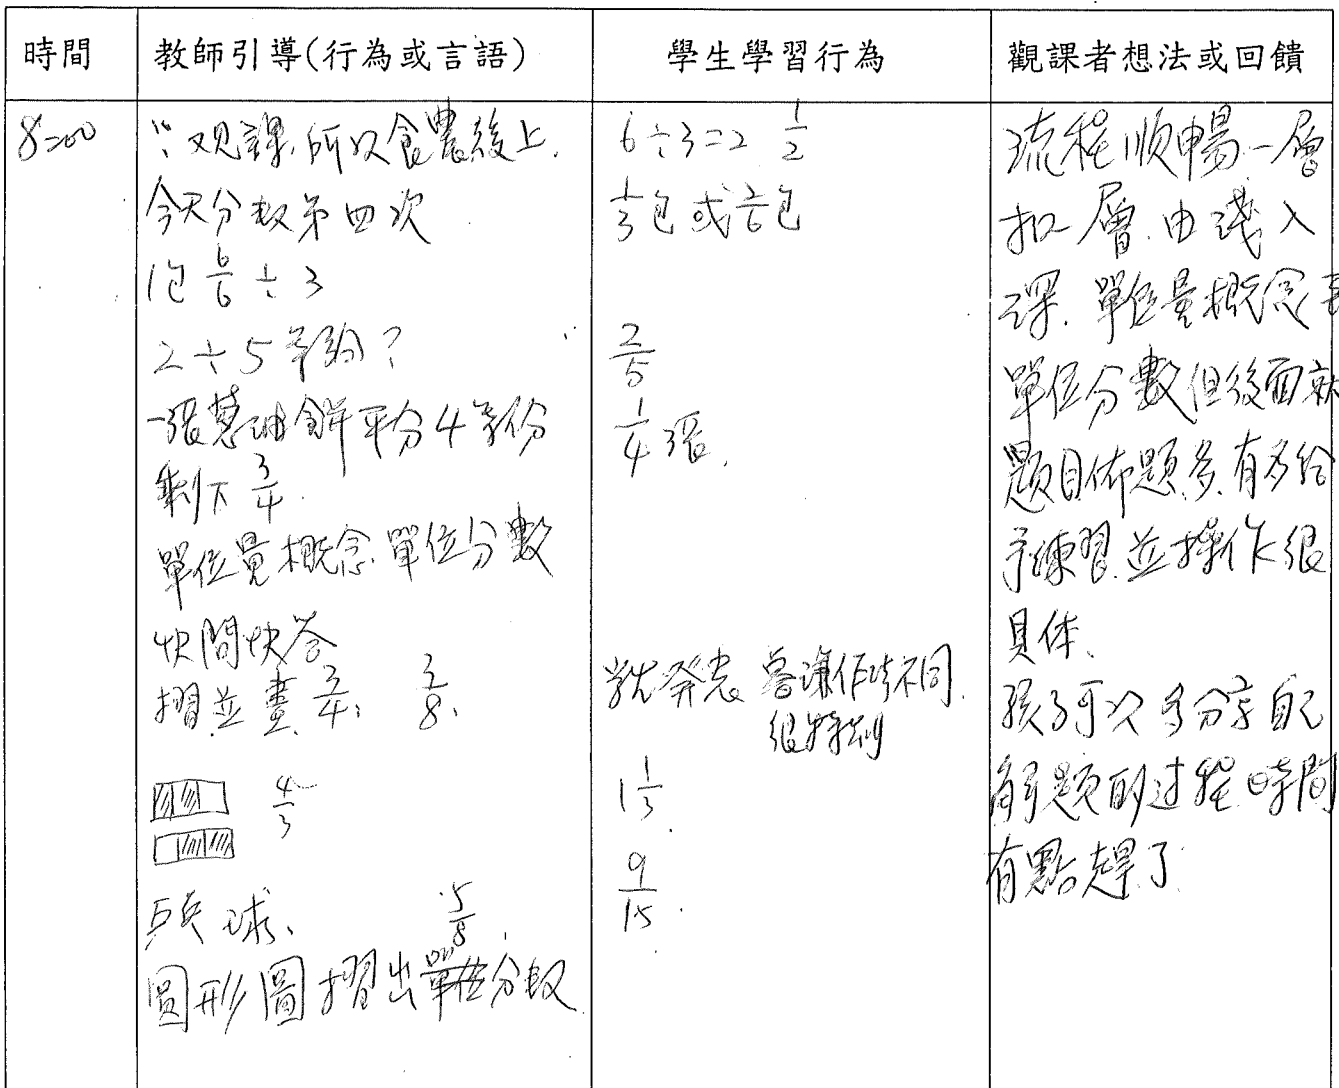 時間
教師引導(行為或言語)
學生學習行為
觀課者想法或回饋
8:00
∵观課,所以食農後上.
今天分数第四次
1包 6/6 ÷ 3
2÷5等於?
一張蔥油餅平分4等份
剩下 3/4.
單位量概念.單位分數
快問快答
摺並畫 3/4、 3/8、
4/3
球、 5/8.
圓形圖摺出單位分数
6÷3=2 1/2
1/3包或2/6包
2/5
1/4張.
發表 作法不同.
很特别
1 1/3.
9/15.
流程順暢一層
扣一層.由淺入
深.單位量概念
單位分數但後面
題目佈題多.有多給
予練習.並操作很
具体.
孩子可以多分享自己
解題的过程.時間
有點趕了.